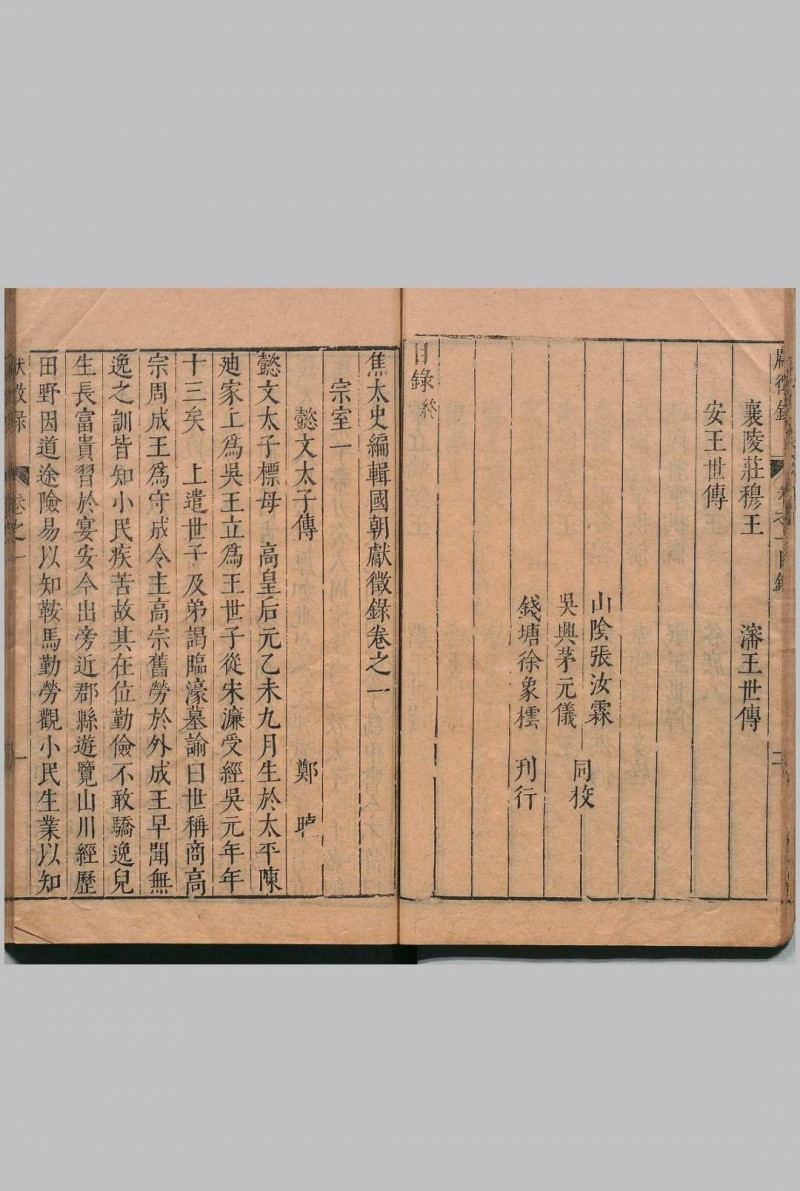 獻徵錄 卷之一目錄 二
襄陵莊穆王 瀋王世傳
安王世傳
山陰張汝霖
吳興茅元儀 同校
錢塘徐象橒 刊行
目錄終
焦太史編輯國朝獻徵錄卷之一
宗室一
懿文太子傳 鄭曉
懿文太子標母 高皇后元乙未九月生於太平陳
廸家上為吳王立為王世子從宋濂受經吳元年年
十三矣 上遣世子及弟謁臨濠墓諭曰世稱商高
宗周成王為守成令主高宗舊勞於外成王早聞無
逸之訓皆知小民疾苦故其在位勤儉不敢驕逸兒
生長富貴習於宴安今出旁近郡縣遊覽山川經歷
田野因道途險易以知鞍馬勤勞觀小民生業以知
獻徵錄 卷之一 一